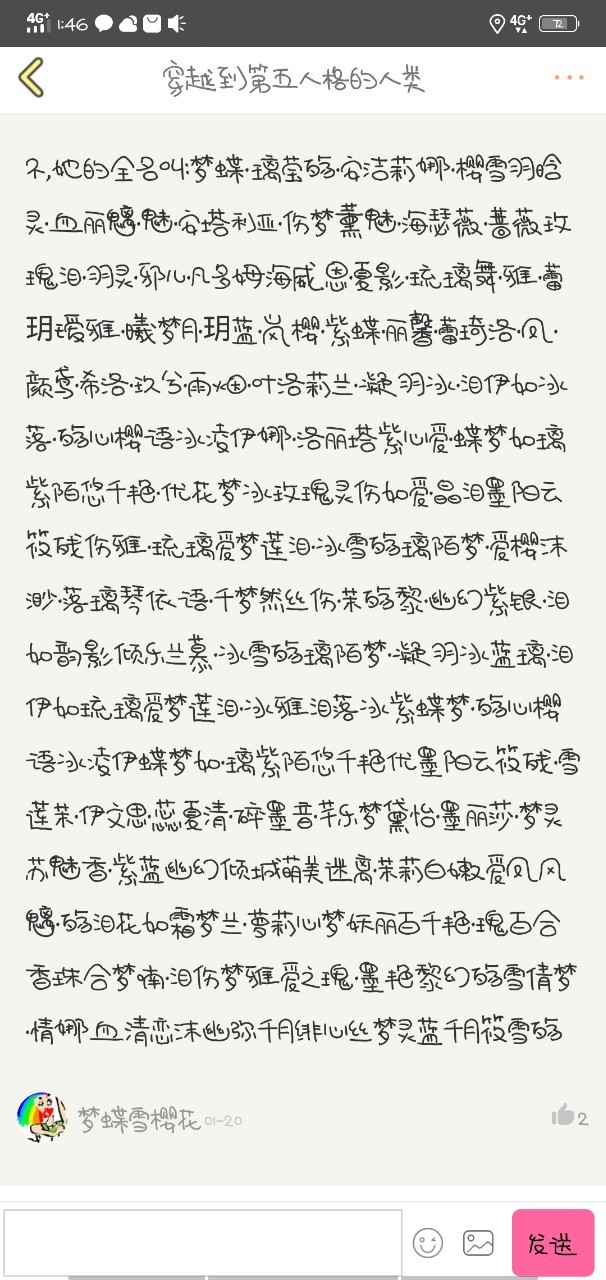 4G+ 1:46 4G+ 72
穿越到第五人格的人类
不,她的全名叫·梦蝶·璃莹殇·安洁莉娜·樱雪羽晗
灵·血丽魑·魅·安塔利亚·伤梦薰魅·海瑟薇·蔷薇玫
瑰泪·羽灵·邪儿·凡多姆海威恩·夏影·琉璃舞·雅·蕾
玥瑷雅·曦梦月·玥蓝·岚樱·紫蝶·丽馨·蕾琦洛·凤·
颜鸢·希洛·玖兮·雨烟·叶洛莉兰·凝羽冰·泪伊如冰
落·殇心樱语冰凌伊娜·洛丽塔紫心爱·蝶梦如璃
紫陌悠千艳·优花梦冰玫瑰灵伤如爱·晶泪墨阳云
筱残伤雅·琉璃爱梦莲泪·冰雪殇璃陌梦·爱樱沫
渺·落璃琴依语·千梦然丝伤·茉殇黎·幽幻紫银·泪
如韵影倾乐兰慕·冰雪殇璃陌梦·凝羽冰蓝璃·泪
伊如琉璃爱梦莲泪·冰雅泪落冰紫蝶梦·殇心樱
语冰凌伊蝶梦如·璃紫陌悠千艳优墨阳云筱残·雪
莲茉·伊文思·蕊夏清·碎墨音·芊乐梦黛怡墨丽莎·梦灵
苏魅香·紫蓝幽幻倾城萌美迷离·茉莉白嫩爱凤风
魑·殇泪花如霜梦兰·萝莉心梦妖丽百千艳·瑰百合
香珠合梦喃·泪伤梦雅爱之瑰·墨艳黎幻殇雪倩梦
·情娜血清恋沫幽弥千月绯心丝梦灵蓝千月筱雪殇
梦蝶雪樱花 01-20
2
发送